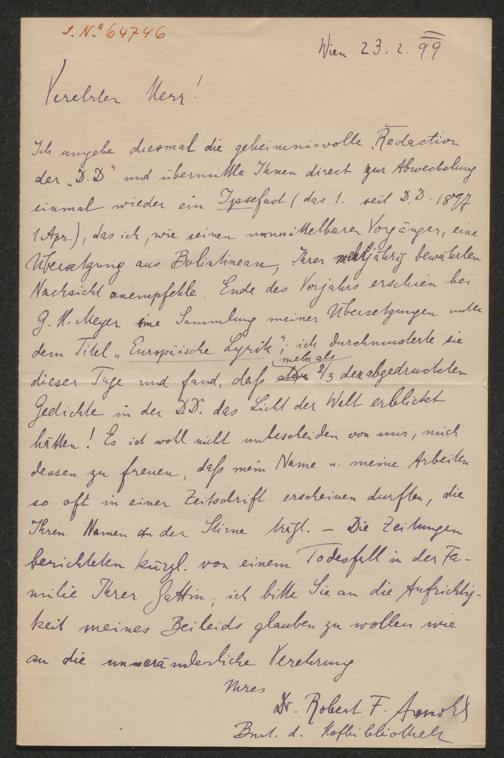 J. N. 64746
Wien 23. 2. 99
Verehrter Herr!
Ich umgehe diesmal die geheimnisvolle Redaction
der „D.D“ und übermittle Ihnen direct zur Abwechslung
einmal wieder ein (das 1. seit D.D. 1897
1 Apr.), das ich, wie seinen unmittelbaren Vorgänger, eine
Übersetzung aus Bolintineanu, Ihrer bewährten
Nachsicht anempfehle. Ende des Vorjahrs erschien bei
G. H. Meyer eine Sammlung meiner Übersetzungen unter
dem Titel „Europäische Lyrik“; ich durchmusterte sie
dieser Tage und fand, daß mehr als 2/3 der abgedruckten
Gedichte in der DD. das Licht der Welt erblickt
hätten! Es ist wol nicht unbescheiden von mir, mich
dessen zu freuen, daß mein Name u. meine Arbeiten
so oft in einer Zeitschrift erscheinen durften, die
Ihren Namen an der Stirne trägt. – Die Zeitungen
berichteten kürzl. von einem Todesfall in der Fa-
milie Ihrer Gattin; ich bitte Sie an die Aufrichtig-
keit meines Beileids glauben zu wollen wie
an die unveränderliche Verehrung
Ihres
Dr. Robert F. Arnold
d. Hofbibliothek